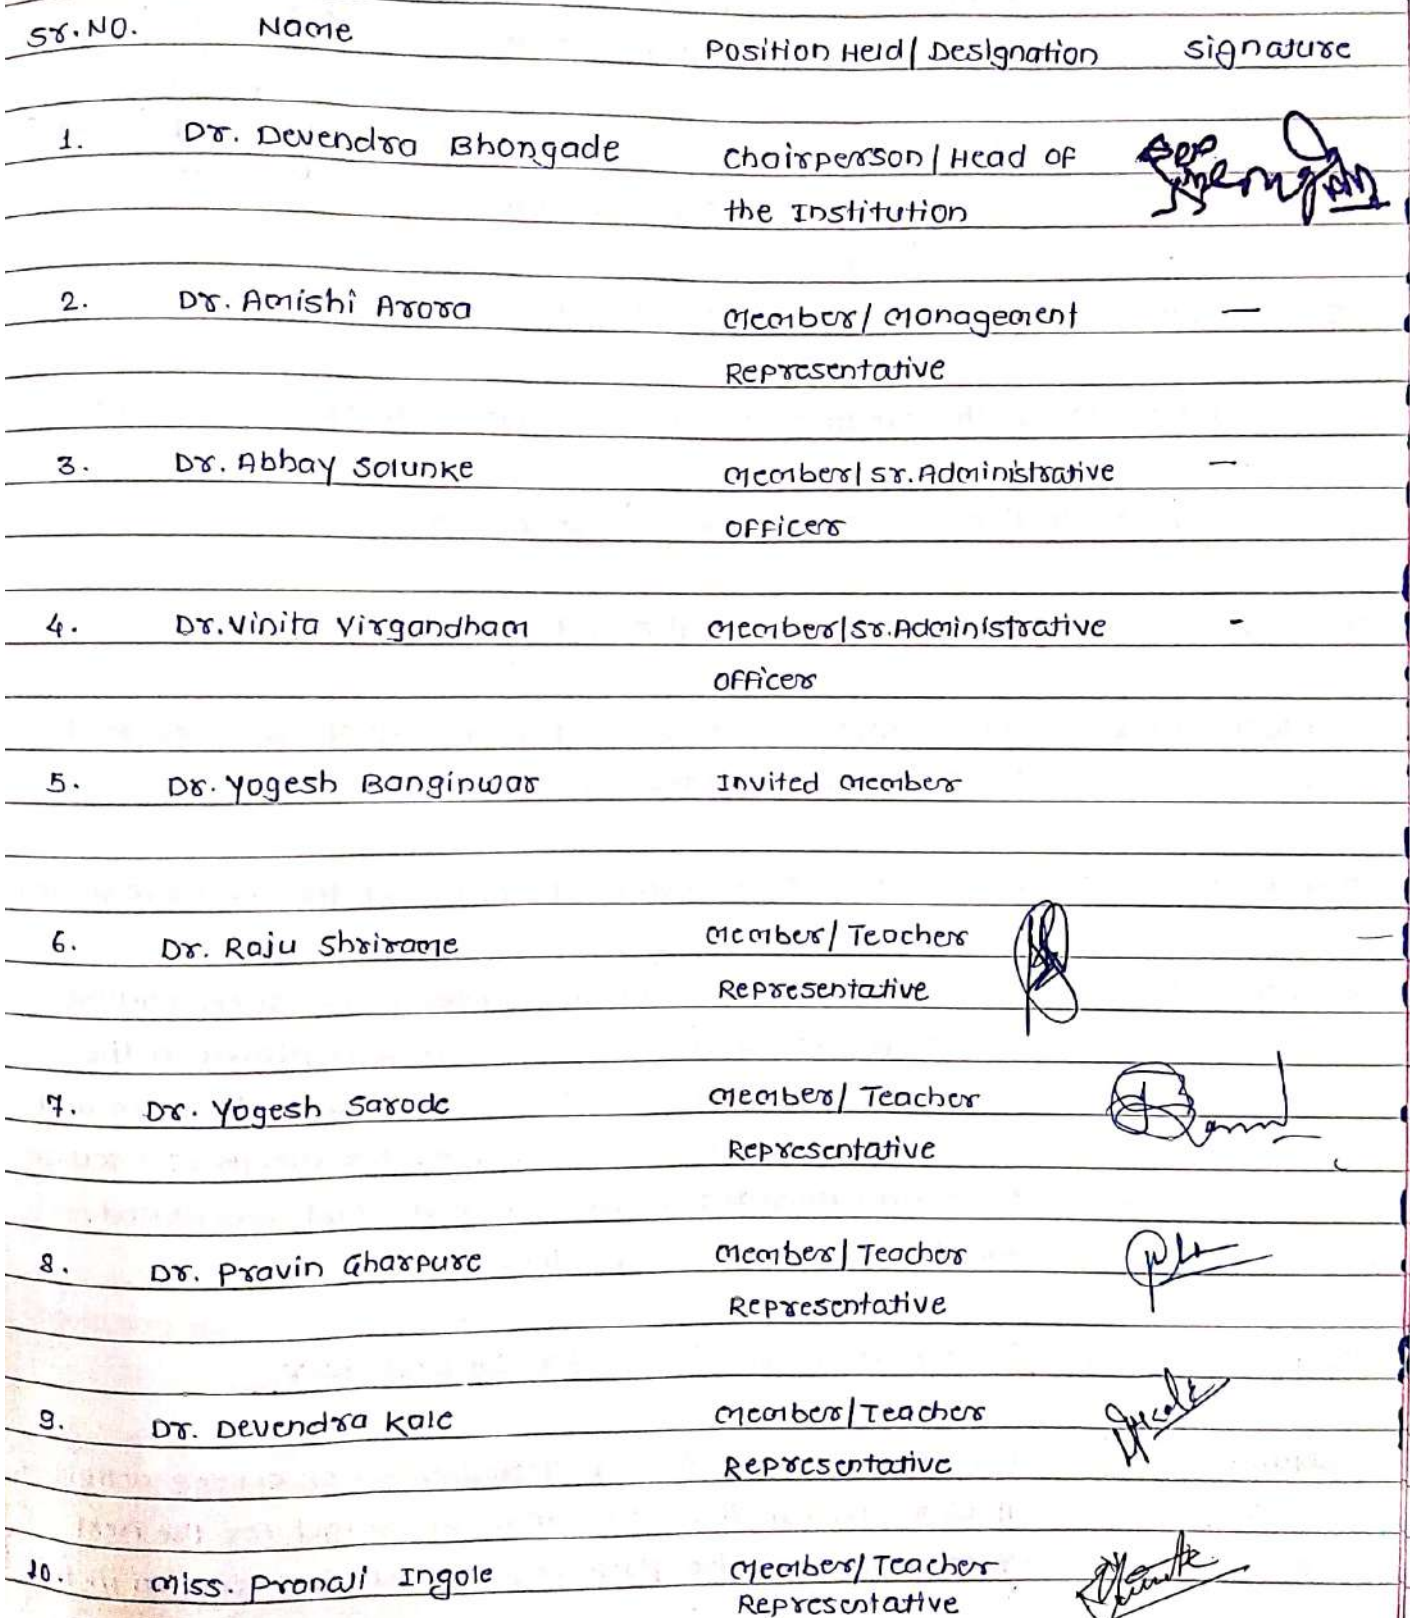 Sr. No. Name Position Held / Designation Signature
1. Dr. Devendra Bhongade Chairperson / Head of
the Institution
2. Dr. Amishi Arora Member / Management —
Representative
3. Dr. Abhay Solunke Member / Sr. Administrative —
Officer
4. Dr. Vinita Virgandham Member / Sr. Administrative -
Officer
5. Dr. Yogesh Banginwar Invited Member
6. Dr. Raju Shrirame Member / Teacher —
Representative
7. Dr. Yogesh Sarode Member / Teacher
Representative
8. Dr. Pravin Gharpure Member / Teacher
Representative
9. Dr. Devendra Kale Member / Teacher
Representative
10. Miss. Pronali Ingole Member / Teacher
Representative